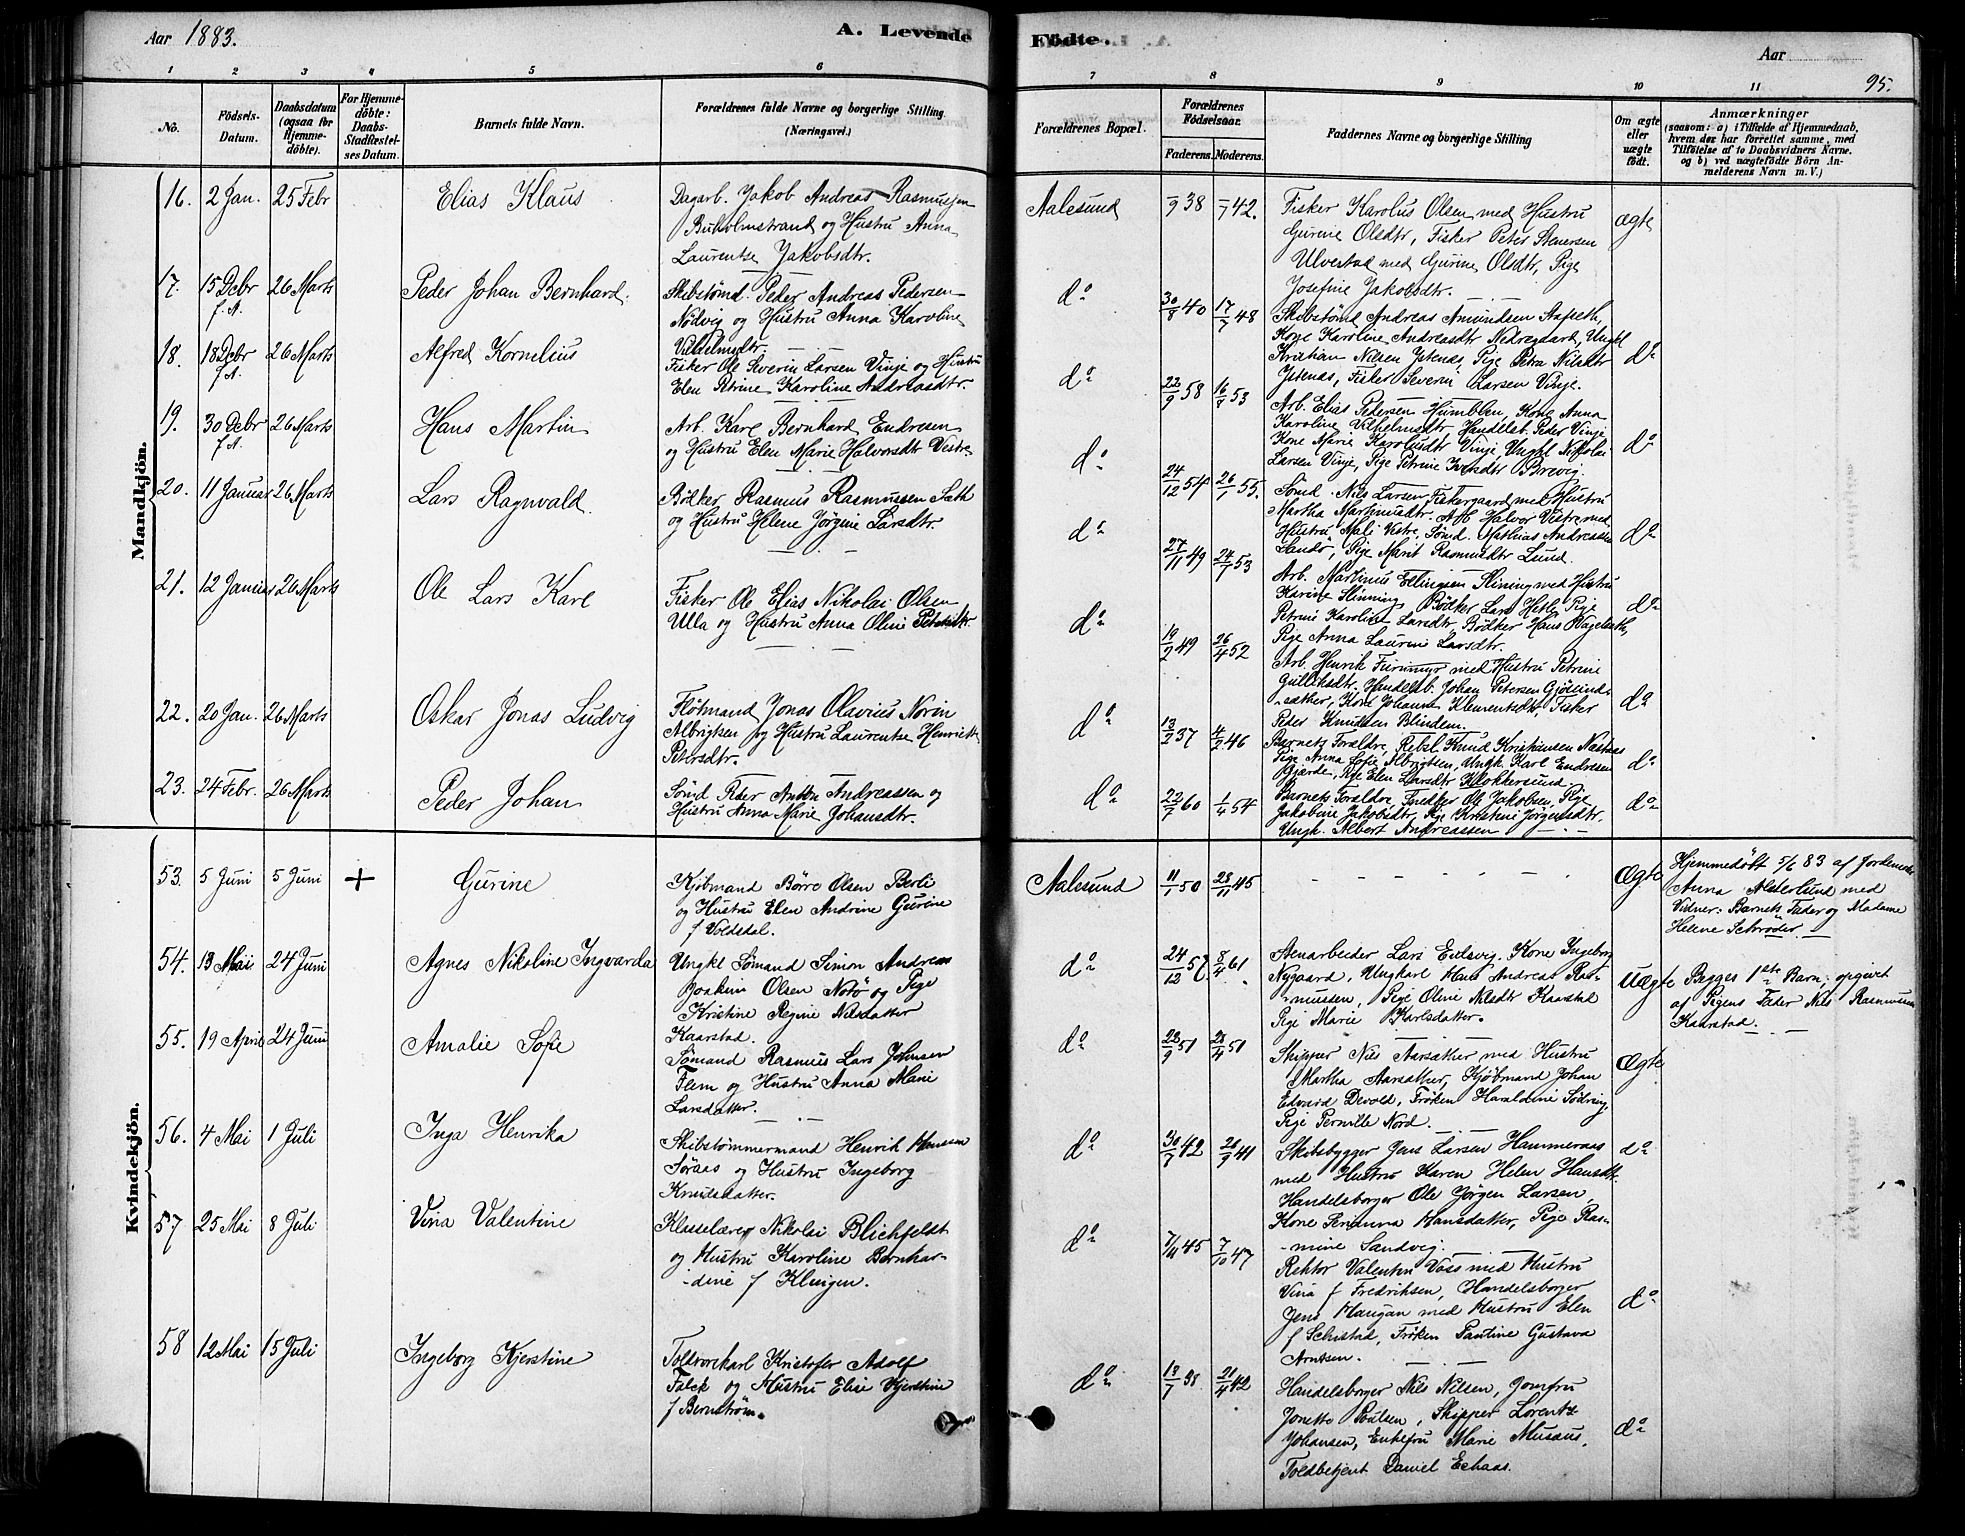 Aar 1883.
A. Levende
Födte.
Aar
95.
1 2 3 4 5 6 7 8 9 10 11
No.
Födsels-
Datum.
Daabsdatum
(ogsaa for
Hjemme-
döbte).
For Hjemme-
döbte:
Daabs-
Stadfæstel-
ses Datum.
Barnets fulde Navn.
Forældrenes fulde Navne og borgerlige Stilling.
(Næringsvei.)
Forældrenes Bopæl.
Forældrenes
Födselsaar.
Faderens. Moderens.
Faddernes Navne og borgerlige Stilling
Om ægte
eller
uægte
födt.
Anmærkninger
(saasom: a) i Tilfælde af Hjemmedaab,
hvem der har forrettet samme, med
Tilföielse af to Daabsvidners Navne.
og b) ved uægtefödte Börn An-
melderens Navn m. V.)
Mandkjön.
16. 2 Jan. 25 Febr Elias Klaus
Dagarb. Jakob Andreas Rasmussen
Buholmstrand og Hustru Anna
Laurentse Jakobsdtr.
Aalesund /9 38 /7 42.
Fisker Karolus Olsen med Hustru
Gurine Olsdtr, Fisker Peter Stenersen
Ulvestad med Gurine Olsdtr, Pige
Josefine Jakobsdtr.
ægte
17. 15 Debr f.A. 26 Marts Peder Johan Bernhard.
Skibstømd. Peder Andreas Pedersen
Nödvig og Hustru Anna Karoline
Vilhelmsdtr.
do 30/8 40 17/7 48
Skibstømd Andreas Amundsen Aafseth,
Kone Karoline Andreasdtr Nedregaard, Ungkl
Kristian Nilsen Ystenæs, Pige Petra Nilsdtr
Ystenæs, Fisker Severin Larsen Vinje.
do
18. 18 Debr f.A. 26 Marts Alfred Kornelius
Fisker Ole Severin Larsen Vinje og Hustru
Elen Petrine Karoline Andreasdtr.
do 22/9 58 16/7 53
Arb. Elias Pedersen Humblen, Kone Anna
Karoline Vilhelmsdtr, Handelsb. Peder Vinje
Kone Marie Karolusdtr Vinje, Ungkl Nikolai
Larsen Vinje, Pige Petrine Iversdtr Brevig.
do
19. 30 Debr f.A. 26 Marts Hans Martin
Arb. Karl Bernhard Endresen
og Hustru Elen Marie Halvorsdtr Vestre
do 24/12 54 26/1 55.
Sömd. Nils Larsen Fiskergaard med Hustru
Martha Martinusdtr. Arb. Halvor Vestre med
Hustru Mali Vestre, Sømd. Mathias Andreassen
Sandö, Pige Marit Rasmusdtr Lund.
do
20. 11 Januar 26 Marts Lars Ragnvald.
Bödker Rasmus Rasmussen Sæth
og Hustru Helene Jörgine Larsdtr.
do 27/11 49 24/7 53
Arb. Martinus Ellingsen Slinning med Hustru
Karine Slinning, Bödker Lars Hetle, Pige
Petrine Karoline Larsdtr, Bödker Hans Vagelseth,
Pige Anna Laurine Larsdtr.
do
21. 12 Januar 26 Marts Ole Lars Karl
Fisker Ole Elias Nikolai Olsen
Ulla og Hustru Anna Oline
do 19/2 49 26/4 52
Arb. Henrik Furmyr med Hustru Petrine
Gulliksdtr, Handelsb. Johan Petersen Gjösund-
sæther, Kone Johanne Klementsdtr, Fisker
Peder Knudsen Blindem.
do
22. 20 Jan. 26 Marts Oskar Jonas Ludvig
Flötmand Jonas Olavius Norin
Albrigtsen og Hustru Laurentse Henriette
Petersdtr.
do 13/2 37 4/2 46
Barnets Forældre, Rebsl. Knud Kristiansen Næsaas
Pige Anna Sofie Albrigtsen, Ungk. Karl Endresen
Gjærde, Pige Elen Larsdtr Klokkersund
do
23. 24 Febr. 26 Marts Peder Johan
Sömd. Peder Anton Andreassen og
Hustru Anna Marie Johansdtr.
do 22/7 60 1/4 54
Barnets Forældre, Snedker Ole Jakobsen, Pige
Jakobine Jakobsdtr, Pige Kristine Jörgensdtr.
Ungk. Albert Andreassen
do
Kvindekjön.
53. 5 Juni 5 Juni + Gurine
Kjöbmand Börre Olsen Berli
og Hustru Elen Andrine Gurine
f Voldsdal.
Aalesund 11/1 50 28/11 45
Ægte
Hjemmedöbt 5/6 83 af Jordemoder
Anna Alsterlund med
Vidner: Barnets Fader og Madame
Helene Schröder
54. 13 Mai 24 Juni Agnes Nikoline Ingvarda
Ungkl Sömand Simon Andreas
Joakim Olsen Notö og Pige
Kristine Regine Nilsdatter
Kaarstad.
do 24/12 57. 8/4 61
Stenarbeider Lars Eidsvig, Kone Ingeborg
Nygaard, Ungkarl Hans Andreas Ras-
mussen, Pige Oline Nilsdtr Karstad
Pige Marie Karlsdatter.
Uægte
Begges 1ste Barn; opgivet
af Pigens Fader Nils Rasmussen
Kaarstad.
55. 19 April 24 Juni Amalie Sofie
Sömand Rasmus Lars Johnsen
Flem og Hustru Anna Marie
Larsdatter.
do 22/9 51 28/4 51
Skipper Nils Aarsæther med Hustru
Martha Aarsæther, Kjöbmand Johan
Edvard Devold, Fröken Haraldine Södring,
Pige Pernille Nord.
Ægte
56. 4 Mai 1 Juli Inga Henrika
Skibstömmermand Henrik Hansen
Söraas og Hustru Ingeborg
Knudsdatter.
do 30/7 42 20/9 41
Skibsbygger Jens Larsen Hammernæs
med Hustru Karen Helen Hansdtr.
Handelsborger Ole Jörgen Larsen,
Kone Serianna Hansdatter, Pige Ras-
mine Sandvig.
do
57 25 Mai 8 Juli Vina Valentine
Klasselærer Nikolai Blichfeldt
og Hustru Karoline Bernhar-
-dine f Klingen.
do 7/11 45 7/10 47
Rektor Valentin Voss med Hustru
Vina f Fredriksen, Handelsborger
Jens Haugan med Hustru Elen
f Schistad, Fröken Pauline Gustava
Arntsen.
do
58 12 Mai 15 Juli Ingeborg Kjerstine
Toldvoxkarl Kristofer Adolf
Falck og Hustru Elise Kjerstine
f Bernström.
do 18/7 38 21/4 42
Handelsborger Nils Nilsen, Jomfru
Jonette Poulsen, Skipper Lorentz
Johansen, Enkefru Marie Musæus,
Toldbetjent Daniel Echaas.
do